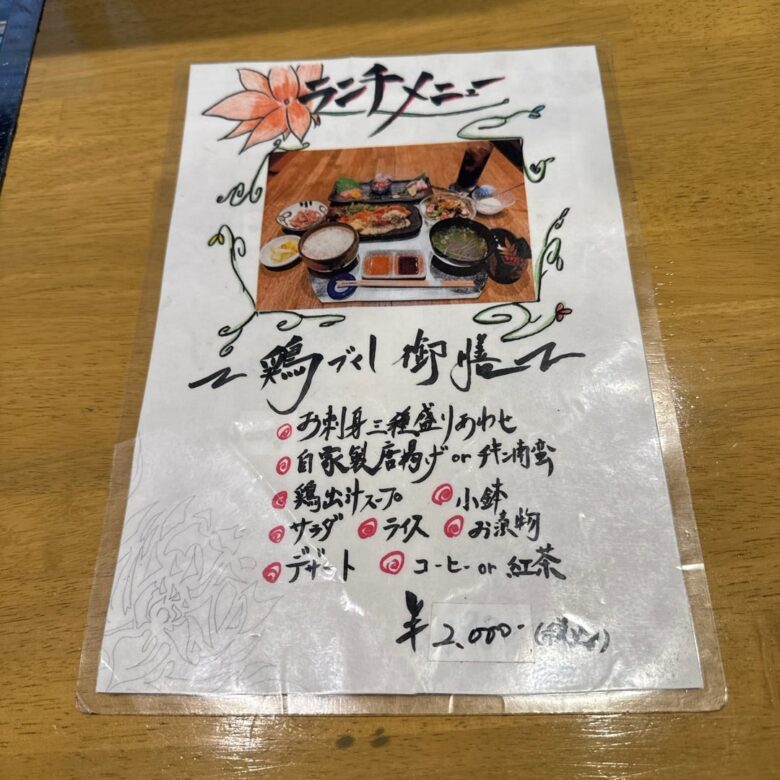 ランチメニュー
鶏づくし御膳
お刺身三種盛りあわせ
自家製唐揚げ or チキン南蛮
鶏出汁スープ 小鉢
サラダ ライス お漬物
デザート コーヒー or 紅茶
¥2,000-